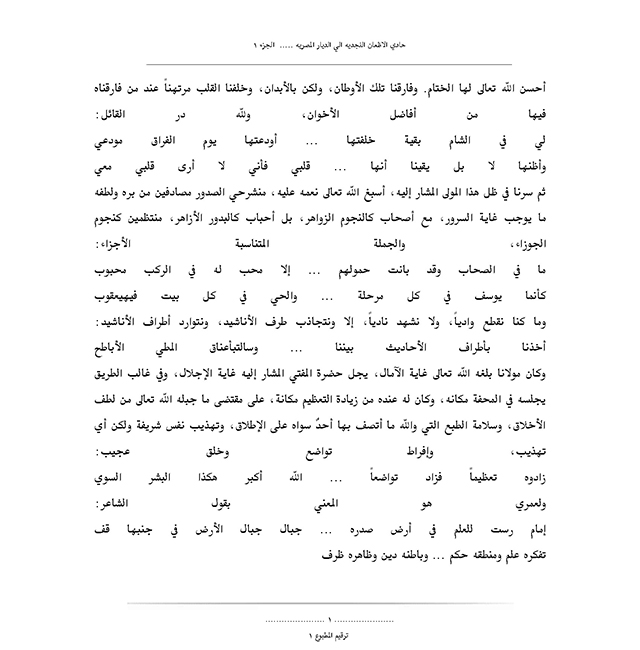 حادي الاظعان النجديه الي الديار المصريه ..... الجزء ١
أحسن الله تعالى لها الختام. وفارقنا تلك الأوطان، ولكن بالأبدان، وخلفنا القلب مرتهناً عند من فارقناه
فيها من أفاضل الأخوان، ولله در القائل:
لي في الشام بقية خلفتها ... أودعتها يوم الفراق مودعي
وأظنها لا بل يقينا أنها ... قلبي فأني لا أرى قلبي معي
ثم سرنا في ظل هذا المولى المشار إليه، أسبغ الله تعالى نعمه عليه، منشرحي الصدور مصادفين من بره ولطفه
ما يوجب غاية السرور، مع أصحاب كالنجوم الزواهر، بل أحباب كالبدور الأزاهر، منتظمين كنجوم
الجوزاء، والجملة المتناسبة الأجزاء:
ما في الصحاب وقد بانت حمولهم ... إلا محب له في الركب محبوب
كأنما يوسف في كل مرحلة ... والحي في كل بيت فيهيعقوب
وما كنا نقطع وادياً، ولا نشهد نادياً، إلا ونتجاذب طرف الأناشيد، ونتوارد أطراف الأناشيد:
أخذنا بأطراف الأحاديث بيننا ... وسالتبأعناق المطي الأباطح
وكان مولانا بلغه الله تعالى غاية الآمال، يجل حضرة المفتي المشار إليه غاية الإجلال، وفي غالب الطريق
يجلسه في المحفة مكانه، وكان له عنده من زيادة التعظيم مكانة، على مقتضى ما جبله الله تعالى من لطف
الأخلاق، وسلامة الطبع التي والله ما أتصف بها أحدٌ سواه على الإطلاق، وتهذيب نفس شريفة ولكن أي
تهذيب، وإفراط تواضع وخلق عجيب:
زادوه تعظيماً فزاد تواضعاً ... الله أكبر هكذا البشر السوي
ولعمري هو المعني بقول الشاعر:
إمام رست للعلم في أرض صدره ... جبال جبال الأرض في جنبها قف
تفكره علم ومنطقه حكم ... وباطنه دين وظاهره ظرف
...................... ١ ......................
ترقيم المطبوع ١